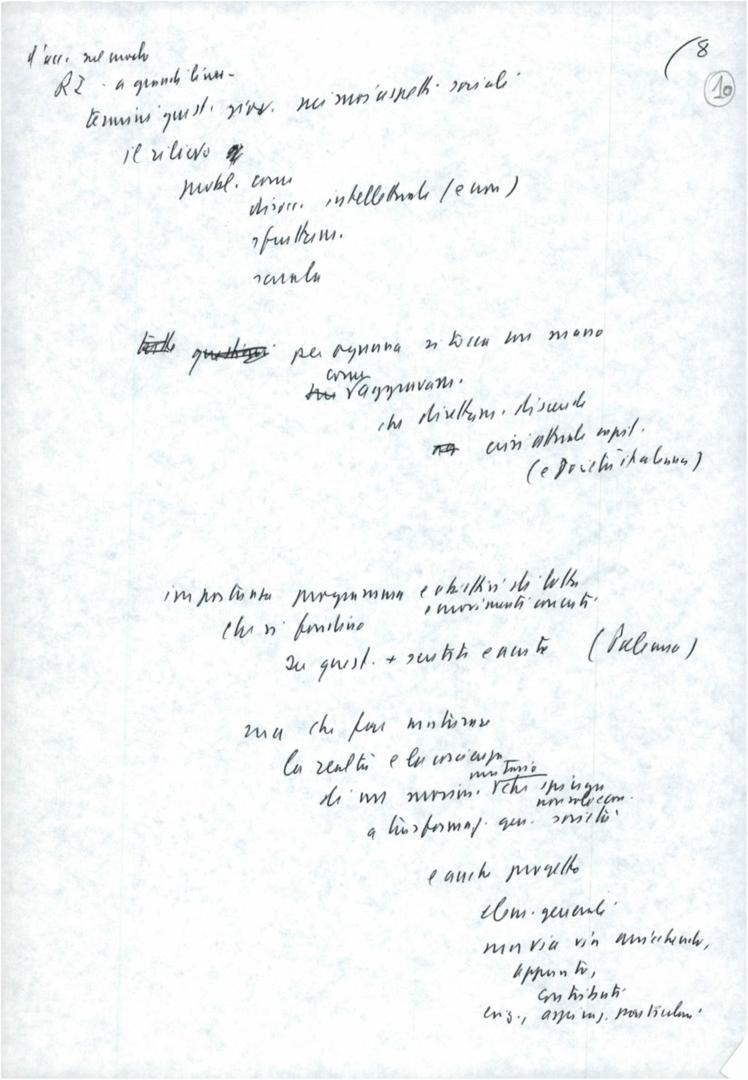 (8
10
d'acc. sul modo
RZ - a grandi linee -
termini quest. giov. nei suoi aspetti sociali
il rilievo
probl. come
disocc. intellettuale (e non)
sfruttam.
scuola
tutte questioni per ognuna si tocca con mano
come
aggravam.
che direttam. discende
crisi attuale capit.
(e società italiana)
importanza programma e obiettivi di lotta
e movimenti concreti
che si fondino
su quest. + sentite e acute (Palermo)
ma che fare maturare
la realtà e la coscienza
unitario
di un movim. che spinga
non solo econ.
a trasformaz. gen. società
e anche progetto
elem. generali
ma via via arricchendo,
appunto,
contributi
esig., aspiraz. particolari